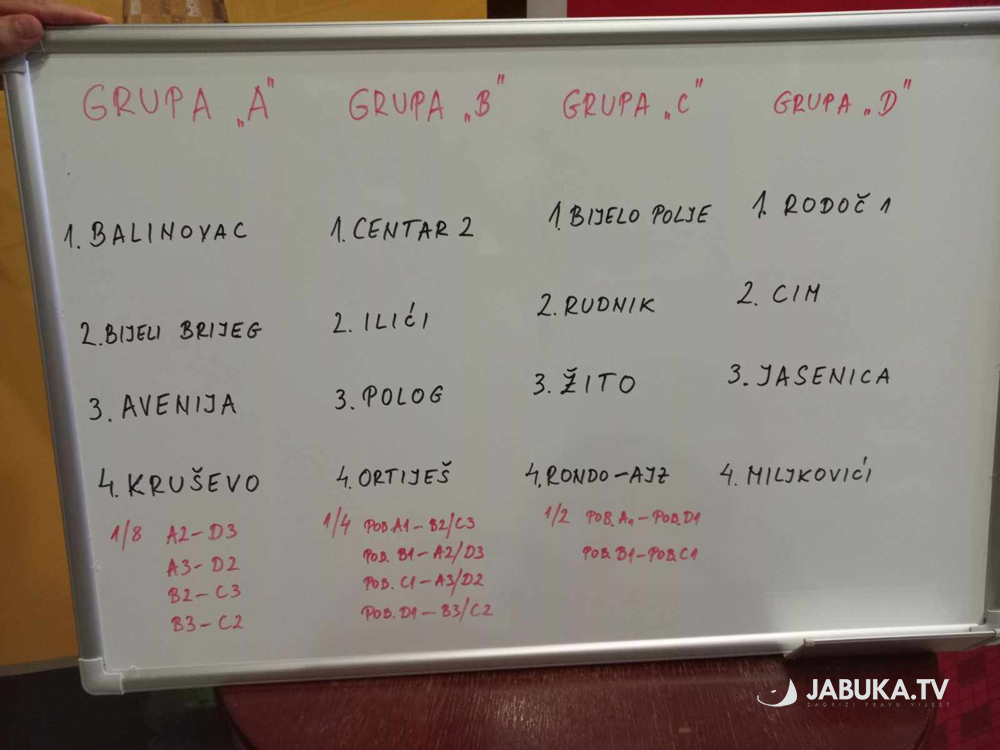 GRUPA „A"
1. BALINOVAC
2. BIJELI BRIJEG
3. AVENIJA
4. KRUŠEVO
1/8 A2-D3
A3-D2
B2-C3
B3-C2
GRUPA „B"
1. CENTAR 2
2. ILIĆI
3. POLOG
4. ORTIJEŠ
1/4 POB A1-B2/C3
POB. B1-A2/D3
POB. C1-A3/D2
POB. D1-B3/C2
GRUPA „C"
1. BIJELO POLJE
2. RUDNIK
3. ŽITO
4. RONDO-AJZ
1/2 POB. A1-POB.D1
POB. B1-POB.C1
GRUPA „D"
1. RODOČ 1
2. CIM
3. JASENICA
4. MILJKOVIĆI
JABUKA.TV
ZAGRIZI PRAVU VIJEST